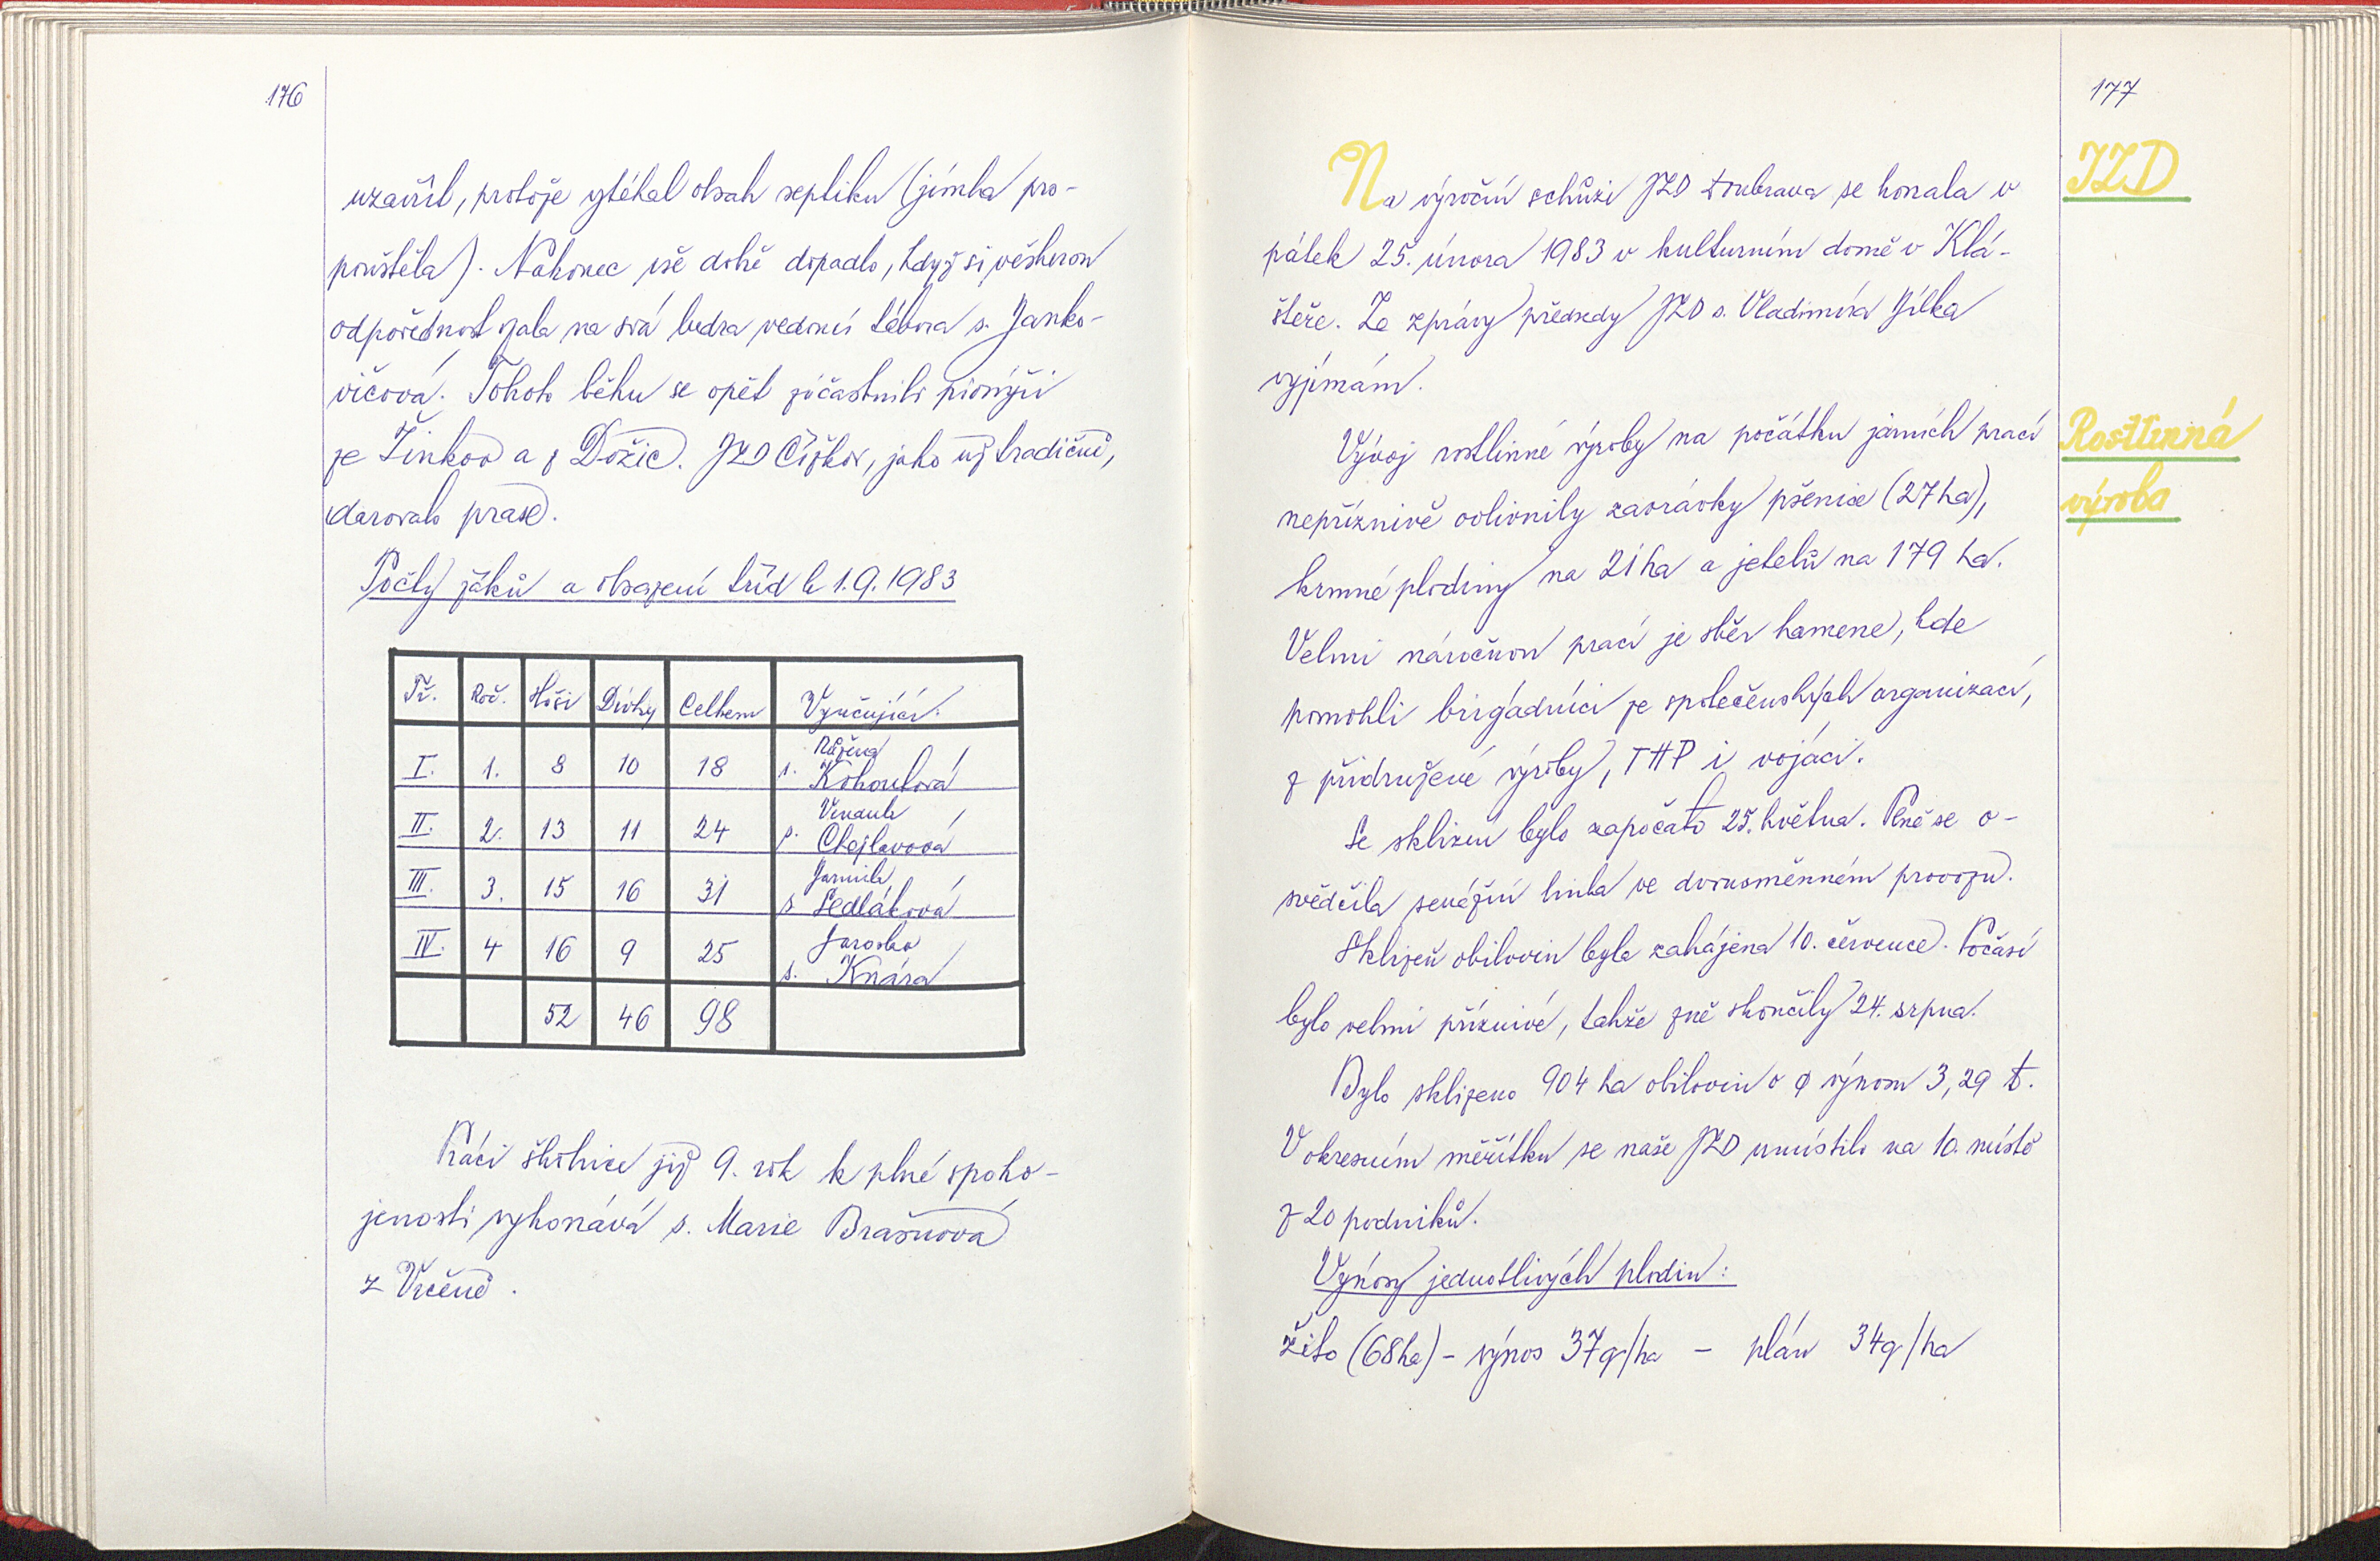 176
uzavřít, protože vytékal obsah septiku (jímka pro-
pouštěla). Nakonec vše dobře dopadlo, když si veškerou
odpovědnost vzala na svá bedra vedoucí tábora s. Janko-
vičová. Tohoto běhu se opět zúčastnili pionýři
ze Žinkov a z Dožic. JZD Čížkov, jako už tradičně,
darovalo prase.
Počty žáků a obsazení tříd k 1.9.1983
Tř. Roč. Hoši Dívky Celkem Vyučující
I. 1. 8 10 18 s. Růžena Kohoutová
II. 2. 13 11 24 s. Chejlavová
III. 3. 15 16 31 s. Jarmila Sedláková
IV. 4 16 9 25 s. Jaroslav Knára
52 46 98
Práci školnice již 9. rok k plné spoko-
jenosti vykonává s. Marie Brašnová
z Vrčeně.
177
JZD
Na výroční schůzi JZD Doubrava se konala v
pátek 25. února 1983 v kulturním domě v Klá-
štěře. Ze zprávy předsedy JZD s. Vladimíra Jílka
vyjímám.
Rostlinná
výroba
Vývoj rostlinné výroby na počátku jarních prací
nepříznivě ovlivnily zaorávky pšenice (27 ha),
krmné plodiny na 21 ha a jetelů na 179 ha.
Velmi náročnou prací je sběr kamene, kde
pomohli brigádníci ze společenských organizací,
z přidružené výroby, THP i vojáci.
Se sklizní bylo započato 25. května. Plně se o-
svědčila senážní linka ve dvousměnném provozu.
Sklizeň obilovin byla zahájena 10. července. Počasí
bylo velmi příznivé, takže žně skončily 24. srpna.
Bylo sklizeno 904 ha obilovin o φ výnosu 3,29 t.
V okresním měřítku se naše JZD umístilo na 10. místě
z 20 podniků.
Výnosy jednotlivých plodin:
žito (68 ha) - výnos 37 q/ha - plán 34 q/ha